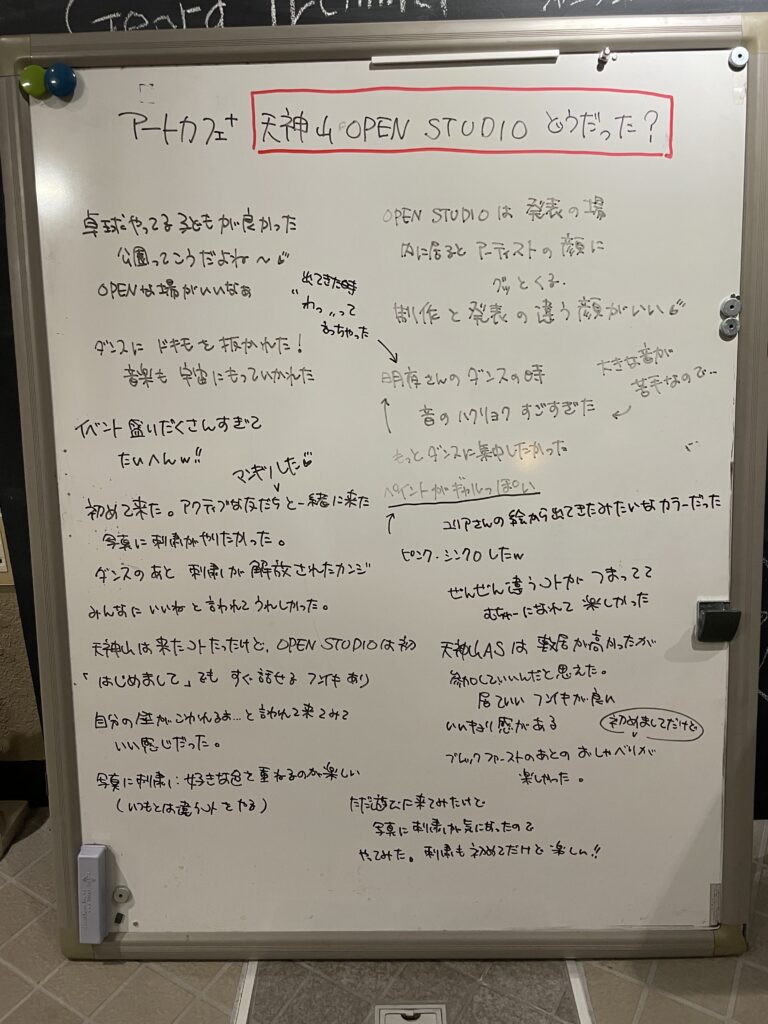 アートカフェ+ 天神山 OPEN STUDIO どうだった?
卓球やってる子どもが良かった
公園ってこうだよね〜
OPENな場がいいなぁ
ダンスに ドギモを抜かれた!
音楽も 宇宙にもっていかれた
イベント盛りだくさんすぎて
たいへんw!!
マンキツした
初めて来た。アクティブな友だちと一緒に来た
写真に刺繍がやりたかった。
ダンスのあと 刺繍が解放されたカンジ
みんなにいいねと言われてうれしかった。
天神山は来たコトだったけど、OPEN STUDIOは初
「はじめまして」でも すぐ話せる フンイキあり
自分の
がこわれるよ…と言われて来てみて
いい感じだった。
写真に刺繍:好きな色を重ねるのが楽しい
(いつもとは違うコトをやる)
OPEN STUDIO は 発表の場
内に居ると アーティストの顔に
グッとくる.
制作と発表の違う顔がいい
出てきた時
わっ、、って
言っちゃった
明夜さんのダンスの時
音のハクリョク すごすぎた
大きな音が
苦手なので…
もっとダンスに集中したかった
ペイントがギャルっぽい
ユリアさんの絵から出てきたみたいなカラーだった
ピンク・シンクロしたw
ぜんぜん違うコトがつまってて
むちゅーになれて 楽しかった
天神山ASは 敷居が高かったが
参加していいんだと思えた。
居ていい フンイキが良い
いいきり感がある
初めましてだけど
ブレックファーストのあとの おしゃべりが
楽しかった。
ただ遊びに来てみたけど
写真に刺繍が気になったので
やってみた。刺繍も初めてだけど楽しい!!